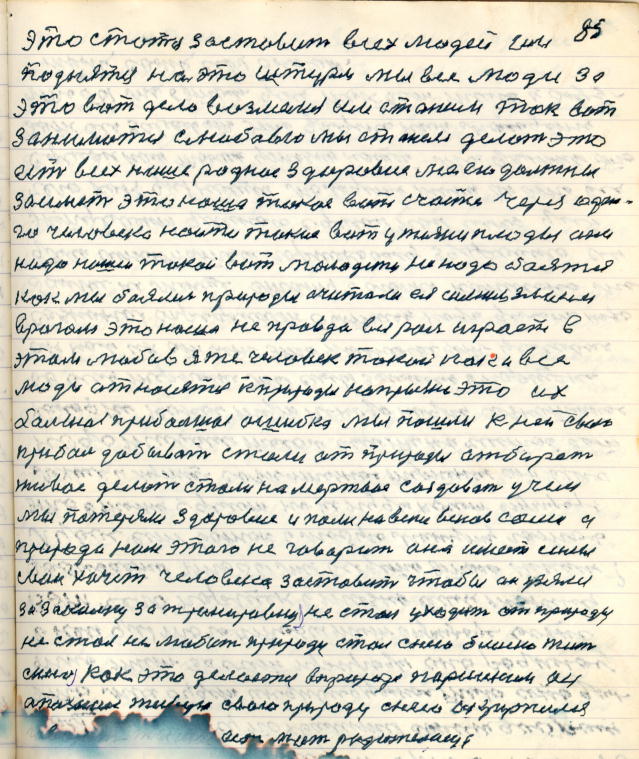 85
это стоты заставит всех людей они
поднятся на это штурм мы все люди за
это вот дело возмемся им станем так вот
заниматся с любовью мы станем делат это
ест всех наше родное здоровие мы его должны
занят это наша такое вот счастье через одно-
го человека найти такие вот плоды они
надо наши такой вот молодеть не надо баятся
как мы баялис природы считали ея силным злыям
врагом это наша не правда вся рол играет в
этом любов я же человек такой как и все
люди относятся к природы направы это их
балшая прибалшая ошибка мы пошли к ней свою
прибал добыват стали от природы отбират
живое делат стали на мертвое создават учем
мы потеряли здоровие и поли на веки веков сами а
природа нам этого не говарит она имеет силы
сваи хочит человека заставить чтобы он узяли
за закалку за тринировку не стал уходит от природы
не стал не любит природу стал снею близко жит
снею как это делаится в природе паршивым он
живую свою природу снею
мат